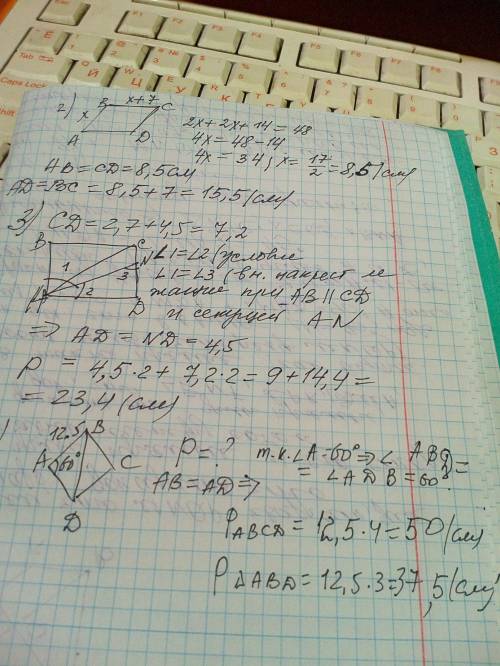 2)
B x+7 C
x
A D
2x+2x+14=48
4x=48-14
4x=34; x=17/2=8,5(см)
AB=CD=8,5см
AD=BC=8,5+7=15,5(см)
3) CD=2,7+4,5=7,2
B C
N
1 3
2
A D
∠1=∠2(условие
∠1=∠3(вн. накрест ле
жащие при AB∥CD
и секущей AN
⇒ AD=ND=4,5
P=4,5·2+7,2·2=9+14,4=
=23,4(см)
12,5 B
A 60° C
D
P=?
AB=AD⇒
т.к.∠A=60°⇒∠ABD=
=∠ADB=60°
P ABCD=12,5·4=50(см)
P ΔABD=12,5·3=37,5(см)